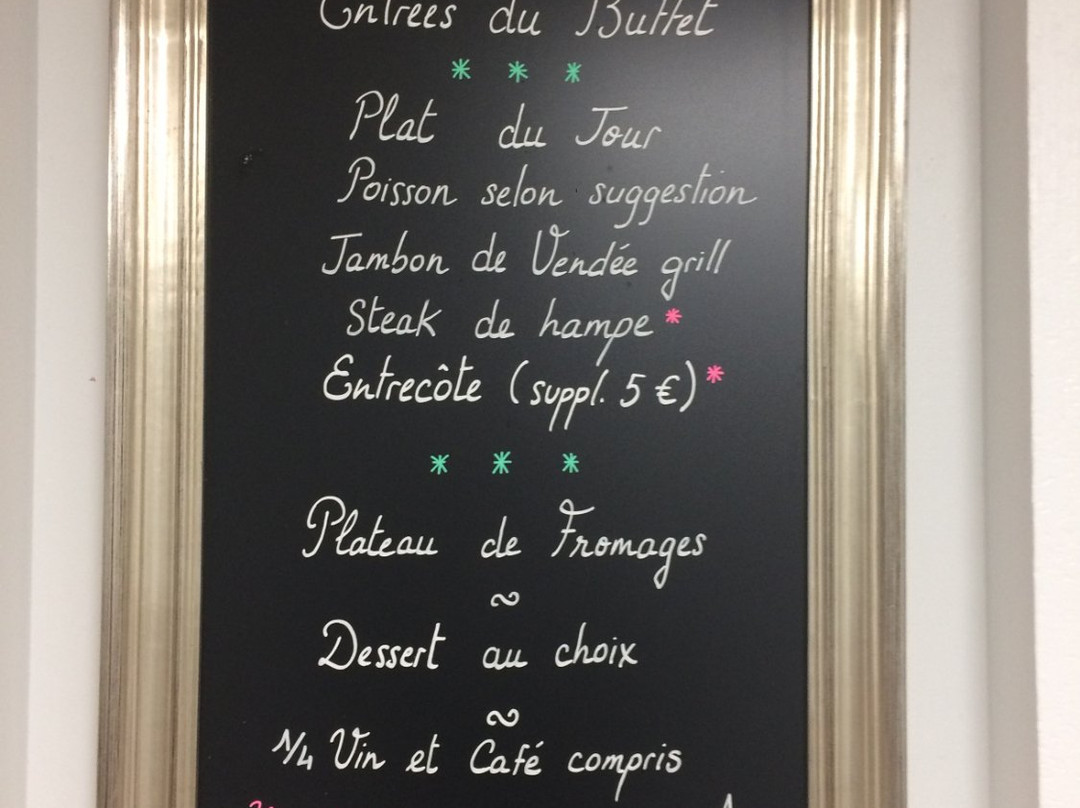 Entrées du Buffet
* * *
Plat du Jour
Poisson selon suggestion
Jambon de Vendée grill
Steak de hampe *
Entrecôte (suppl. 5 €) *
* * *
Plateau de Fromages
~
Dessert au choix
~
1/4 Vin et Café compris